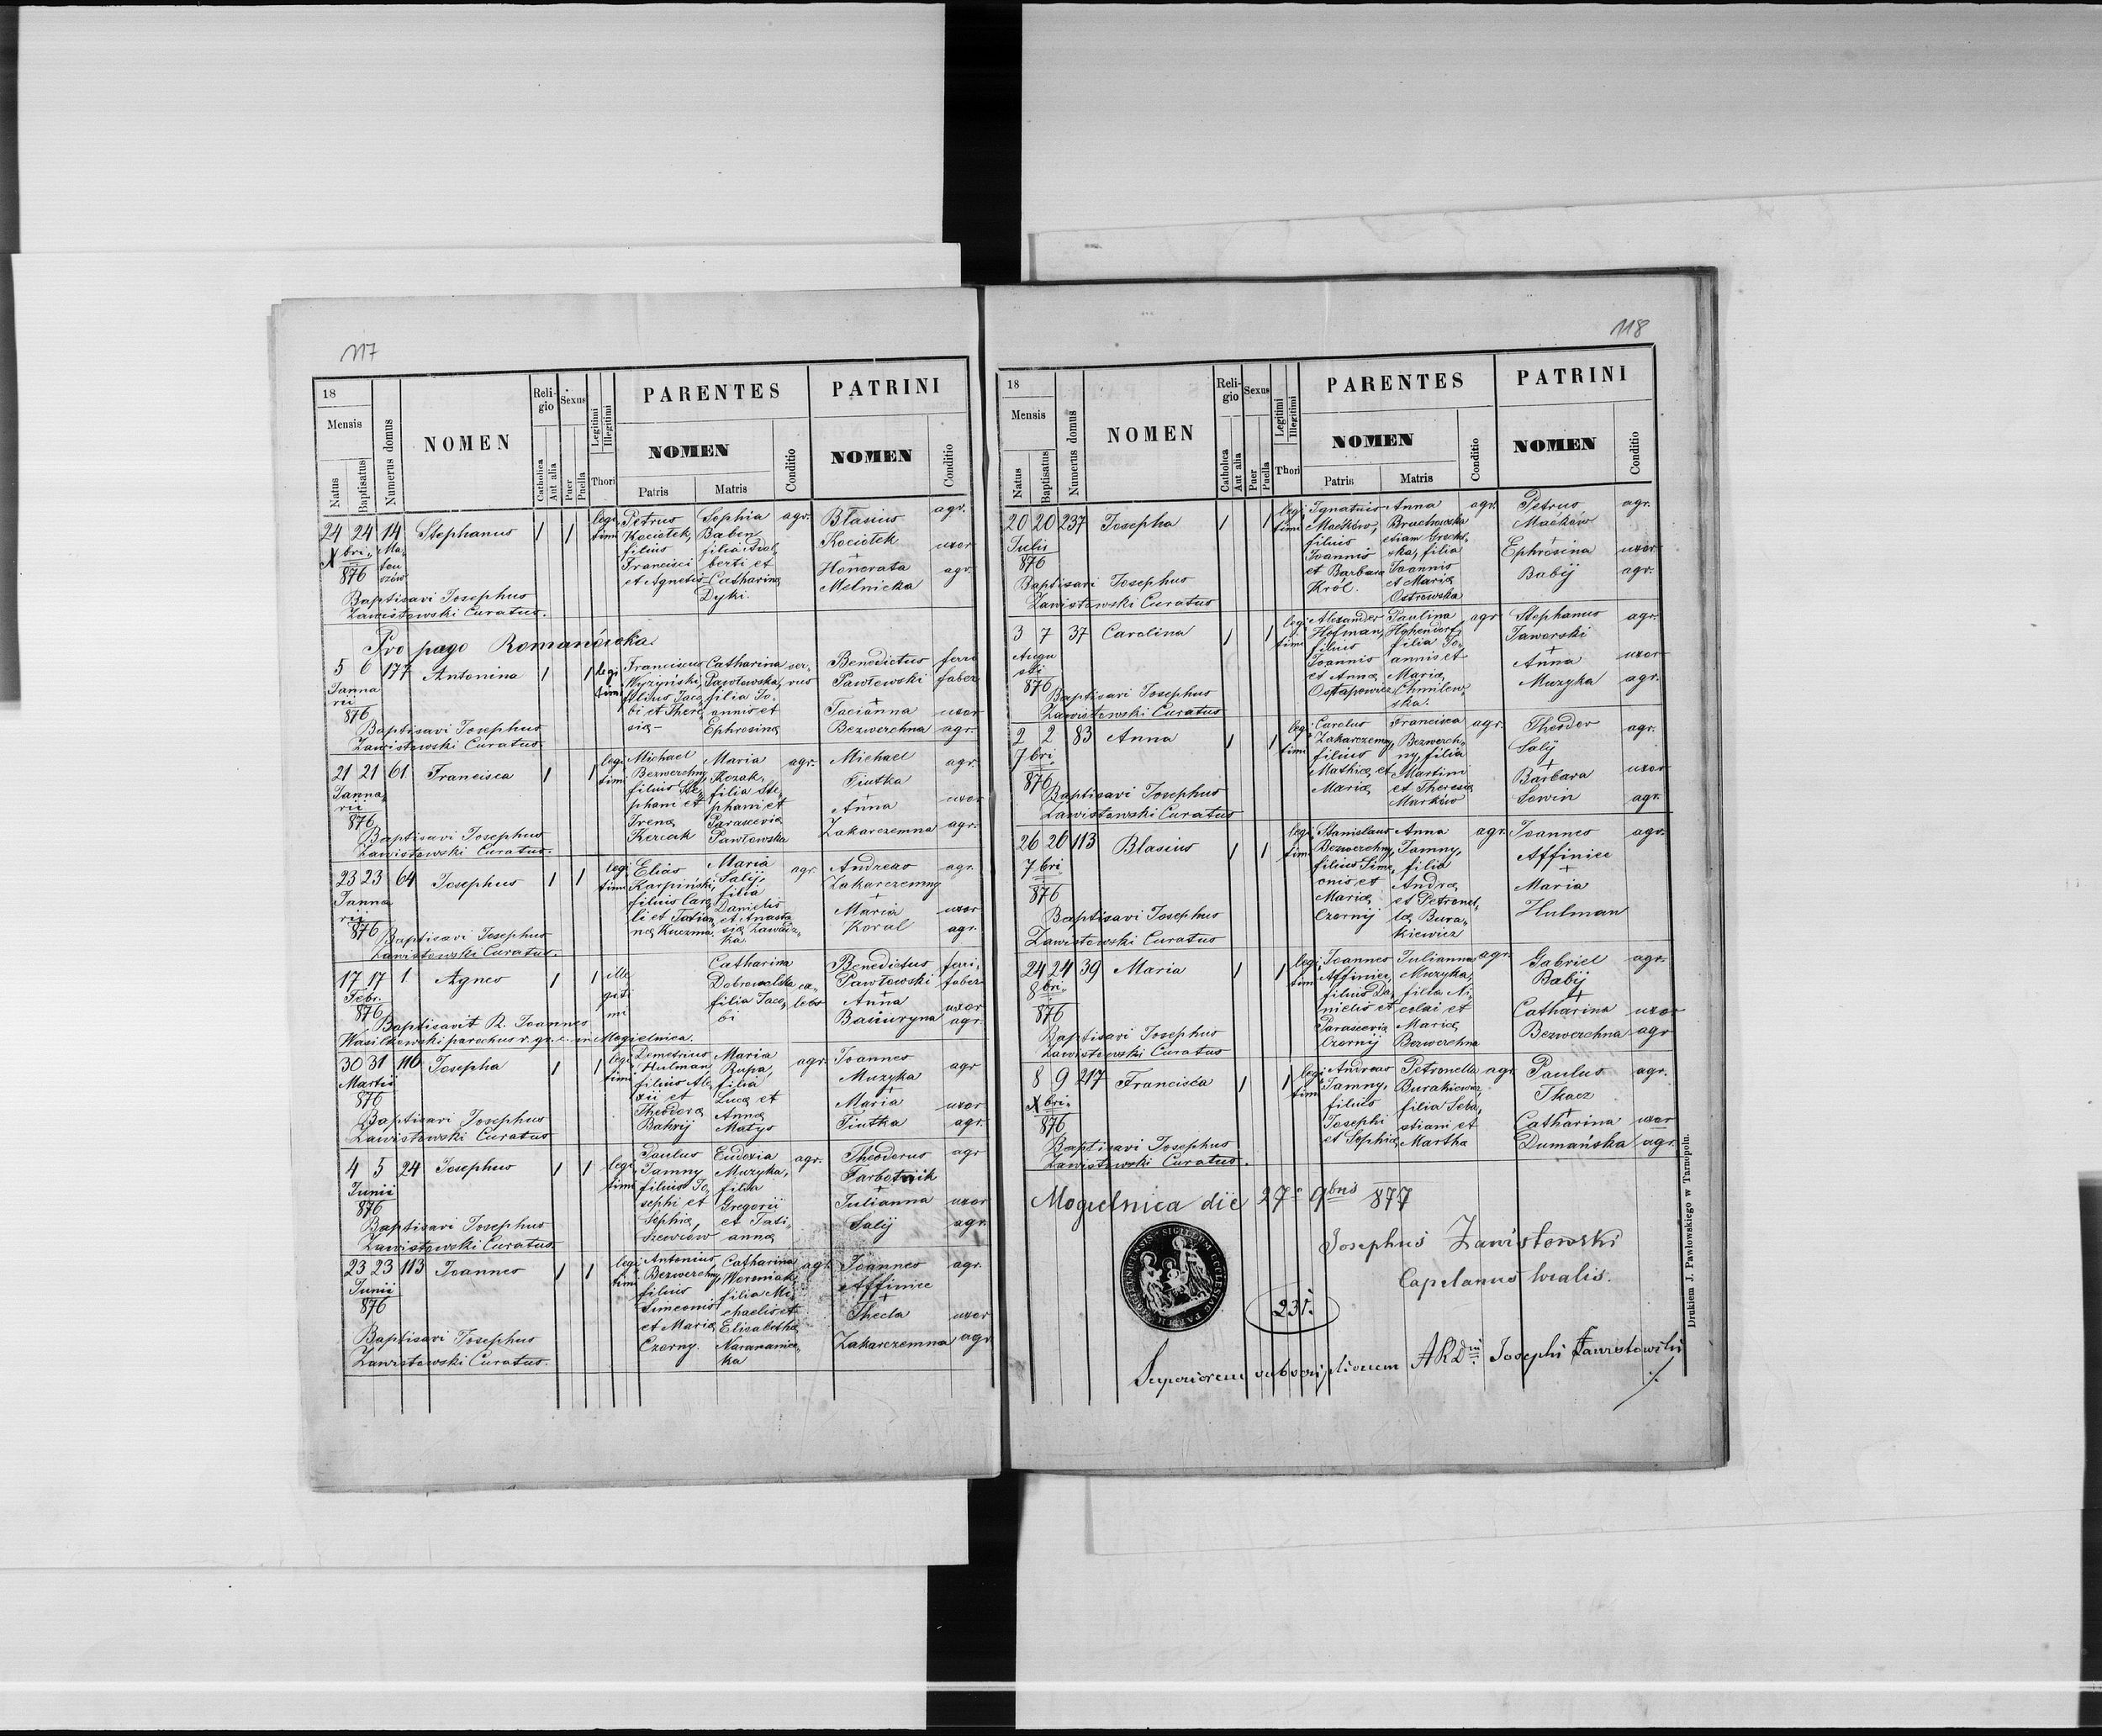 117
18
Mensis
Natus
Baptisatus
Numerus domus
NOMEN
Religio
Catholica
Aut alia
Sexus
Puer
Puella
Legitimi
Illegitimi
Thori
PARENTES
NOMEN
Patris
Matris
Conditio
PATRINI
NOMEN
Conditio
24 24 14 Stephanus 1 1 legi timi Petrus Kociołek, filius Francisci et Agnetis Sophia Baben filia Adal berti et Catharinæ Dyki. agr. Blasius Kociołek + Honorata Melnicka agr. uxor agr.
Xbri. 876 Ma teu szów
Baptisavi Josephus
Zawistowski Curatus.
Pro pago Romanówka.
5 6 177 Antonina 1 1 legi timi Franciscus Wyzyński, filius Jaco bi et There siæ Catharina Pawłowska, filia Jo annis et Ephrosinæ ser vus Benedictus Pawłowski + Tacianna Bezwerchna ferri faber uxor agr.
Janna rii 876
Baptisavi Josephus
Zawistowski Curatus.
21 21 61 Francisca 1 1 legi timi Michael Bezwerchny filius Ste phani et Irenæ Kercak Maria Kozak, filia Ste phani et Parasceviæ Pawłowska agr. Michael Tiutka + Anna Zakarczemna agr. uxor agr.
Janna rii 876
Baptisavi Josephus
Zawistowski Curatus.
23 23 64 Josephus 1 1 legi timi Elias Karpiński, filius Caro li et Tatian næ Kuzma Maria Salij, filia Danielis et Anasta siæ Zawadz ka agr. Andreas Zakarczemny + Maria Koral agr. uxor agr.
Janna rii 876
Baptisavi Josephus
Zawistowski Curatus.
17 17 1 Agnes 1 1 ille giti mi Catharina Dobrowolska filia Jaco bi ca lebs Benedictus Pawłowski + Anna Basiuryna ferri faber uxor agr.
Febr. 876
Baptisavit R. Joannes
Wasilkowski parochus r. gr. c. in Mogielnica.
30 31 116 Josepha 1 1 legi timi Demetrius Hulman filius Ale xii et Theodoræ Bahrij Maria Rupa, filia Lucæ et Annæ Matys agr. Joannes Muzyka + Maria Tiutka agr uxor agr.
Martii 876
Baptisavi Josephus
Zawistowski Curatus
4 5 24 Josephus 1 1 legi timi Paulus Jamny filius Jo sephi et Sophiæ Szewców Eudoxia Muzyka, filia Gregorii et Tati annæ agr. Theodorus Farbotnik + Julianna Salij agr uxor agr.
Junii 876
Baptisavi Josephus
Zawistowski Curatus.
23 23 113 Joannes 1 1 legi timi Antonius Bezwerchny filius Simeonis et Mariæ Czerny. Catharina Worsniak, filia Mi chaelis et Elisabethæ ka agr. Joannes Affinice + Thecla Zakarczemna agr. uxor agr
Junii 876
Baptisavi Josephus
Zawistowski Curatus.
118
18
Mensis
Natus
Baptisatus
Numerus domus
NOMEN
Religio
Catholica
Aut alia
Sexus
Puer
Puella
Legitimi
Illegitimi
Thori
PARENTES
NOMEN
Patris
Matris
Conditio
PATRINI
NOMEN
Conditio
20 20 237 Josepha 1 1 legi timi Ignatius Maćków, filius Joannis et Barbara Król. Anna Bruchowska etiam ska, filia Joannis et Mariæ Ostrowska agr. Petrus Maćków + Ephrosina Babij agr. uxor agr.
Julii 876
Baptisavi Josephus
Zawistowski Curatus
3 7 37 Carolina 1 1 legi timi Alexander Hofman, filius Joannis et Annæ Ostapowicz Paulina Hohendorf, filia Jo annis et Mariæ Chmilew ska. agr Stephanus Jaworski + Anna Muzyka agr. uxor agr.
Augu sti 876
Baptisavi Josephus
Zawistowski Curatus
2 2 83 Anna 1 1 legi timi Carolus Zakarczemny, filius Mathiæ et Mariæ Francisca Bezwerch ny, filia Martini et Theresiæ Marków agr. Theodor Salij + Barbara Sowin agr. uxor agr.
7bri. 876
Baptisavi Josephus
Zawistowski Curatus
26 26 113 Blasius 1 1 legi timi Stanislaus Bezwerchny, filius Sime onis et Mariæ Czernij Anna Jamny, filia Andreæ et Petronel læ Bura kiewicz agr. Joannes Affinice + Maria Hulman agr.
7bri 876
Baptisavi Josephus
Zawistowski Curatus
24 24 39 Maria 1 1 legi timi Joannes Affinice, filius Da nielis et Parasceviæ Czernij Julianna Muzyka, filia Ni colai et Mariæ Bezwerchna agr. Gabriel Babij + Catharina Bezwerchna agr. uxor agr
8bri. 876
Baptisavi Josephus
Zawistowski Curatus
8 9 217 Francisca 1 1 legi timi Andreas Jamny, filius Josephi et Sophiæ Petronella Burakiewicz, filia Seba stiani et Martha agr. Paulus Tkacz + Catharina Dumańska agr. uxor agr.
Xbri. 876
Baptisavi Josephus
Zawistowski Curatus.
Mogielnica die 27 9bris 877
Josephus Zawistowski
Capelanus localis.
231.
Superiorem subscriptionem ARDni Josephi Zawistowski
Drukiem J. Pawłowskiego w Tarnopolu.